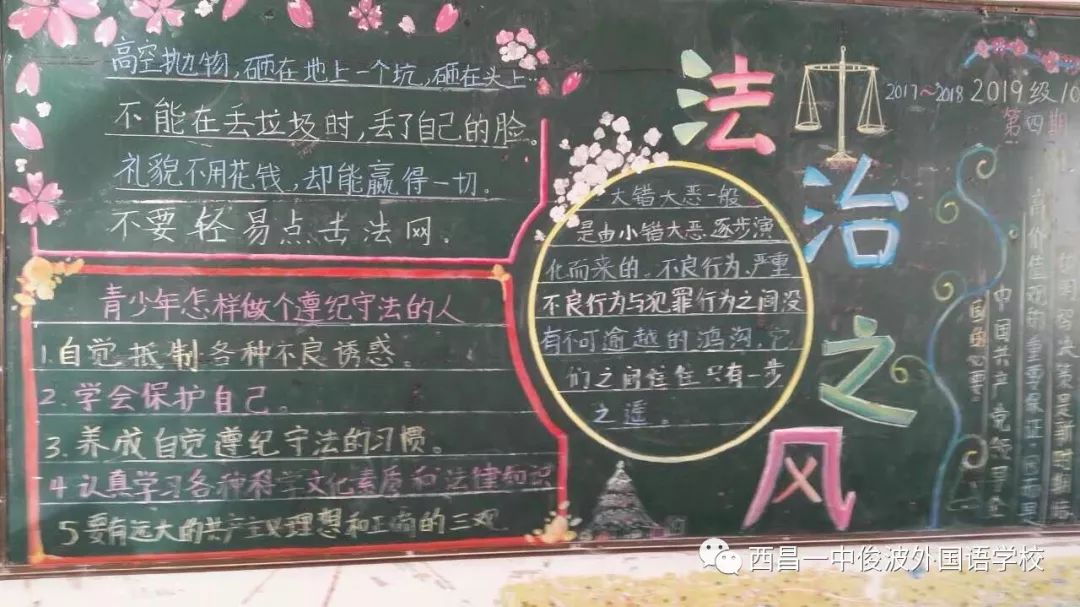 高空抛物，砸在地上一个坑，砸在头上…
不能在丢垃圾时，丢了自己的脸。
礼貌不用花钱，却能赢得一切。
不要轻易点击法网。
青少年怎样做个遵纪守法的人
1.自觉抵制各种不良诱惑。
2.学会保护自己。
3.养成自觉遵纪守法的习惯。
4认真学习各种科学文化素质和法律知识
5要有远大的共产主义理想和正确的三观
法治之风
大错大恶一般
是由小错大恶逐步演
化而来的。不良行为、严重
不良行为与犯罪行为之间没
有不可逾越的鸿沟，它
们之间往往只有一步
之遥。
2017~2018 2019级10
第四期
高价值观的重要保证
中国共产党
西昌一中俊波外国语学校